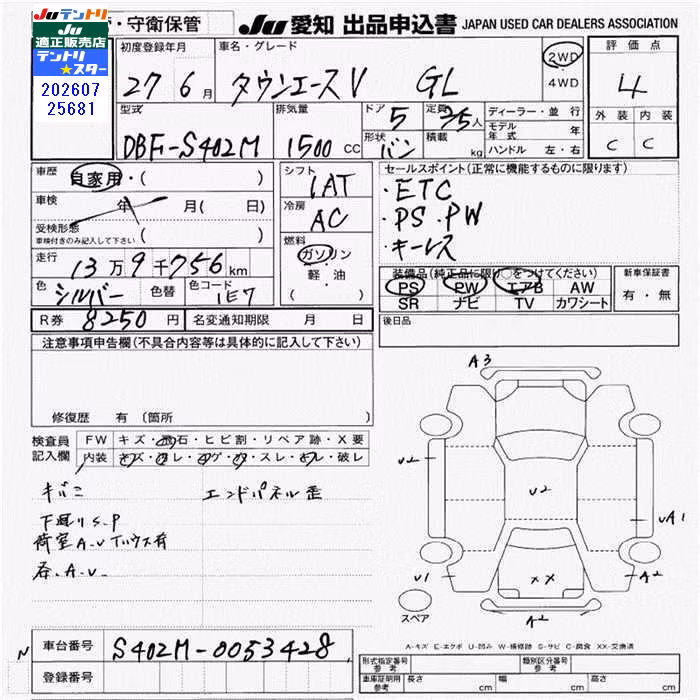 Juテントリ
Ju
適正販売店
テントリ
★スター
202607
25681
・守衛保管
Ju 愛知 出品申込書 JAPAN USED CAR DEALERS ASSOCIATION
初度登録年月 車名・グレード
27 6月 タウンエースV GL
2WD
4WD
評価点
4
外装 内装
C C
型式 排気量 ドア 定員
DBF-S402M 1500 CC 5 2/5人
形状 積載
バン kg
ディーラー・並行
モデル年式 年
ハンドル 左・右
車歴 自家用・( )
車検 年 月( 日)
受検形態
車検付きのみ記入して下さい
走行 13万9千756km
色 シルバー 色替 色コード 1E7
シフト
IAT
冷房
AC
燃料
ガソリン
・軽・油
( )
セールスポイント(正常に機能するものに限ります)
・ETC
・PS・PW
・キーレス
装備品(純正品に限り○をつけてください)
PS PW エアB AW
SR ナビ TV カワシート
新車保証書
有・無
R券 8250円 名変通知期限 月 日
後日品
注意事項申告欄(不具合内容等は具体的に記入して下さい)
修復歴 有(箇所
検査員記入欄
FW キズ・飛石・ヒビ割・リペア跡・X要
内装 キズ・ヨレ・コゲ・穴・スレ・汚レ・破レ
キバミ エンドパネル歪
下廻りS.P
荷室A.V
A.V
A3
U2
U2
UA1
U1
XX
A2
A2
スペア
A-キズ E-エクボ U-凹み W-補修跡 S-サビ C-腐食 XX-交換済
N
車台番号 S402M-0053428
登録番号
形式指定番号参考 類別区分番号参考
車庫証明用参考 長さ cm 幅 cm 高さ cm